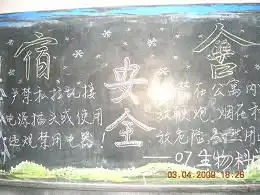 宿舍
安全
严禁私拉乱接
电源插头或使用
违规禁用电器
禁在公寓内
放鞭炮、烟花
放危险易燃
07生物科
03.04.2009 18:26